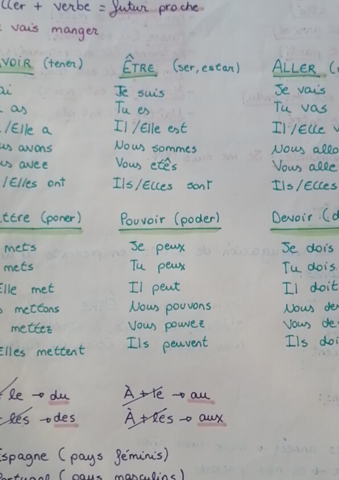 ller + verbe = futur proche
vais manger
VOIR (tener) ÊTRE (ser, estar) ALLER (
ai Je suis Je vais
as Tu es Tu vas
/Elle a Il/Elle est Il/Elle v
us avons Nous sommes Nous allo
us avez Vous etês Vous alle
/Elles ont Ils/Elles sont Ils/Elles
ttre (poner) Pouvoir (poder) Devoir (d
mets Je peux Je dois
mets Tu peux Tu dois
Elle met Il peut Il doit
s mettons Nous pouvons Nous de
mettez Vous pouvez Vous de
Elles mettent Ils peuvent Ils doi
le → du À + le → au
les → des À + les → aux
Espagne (pays féminis)
Portugal (pays masculins)